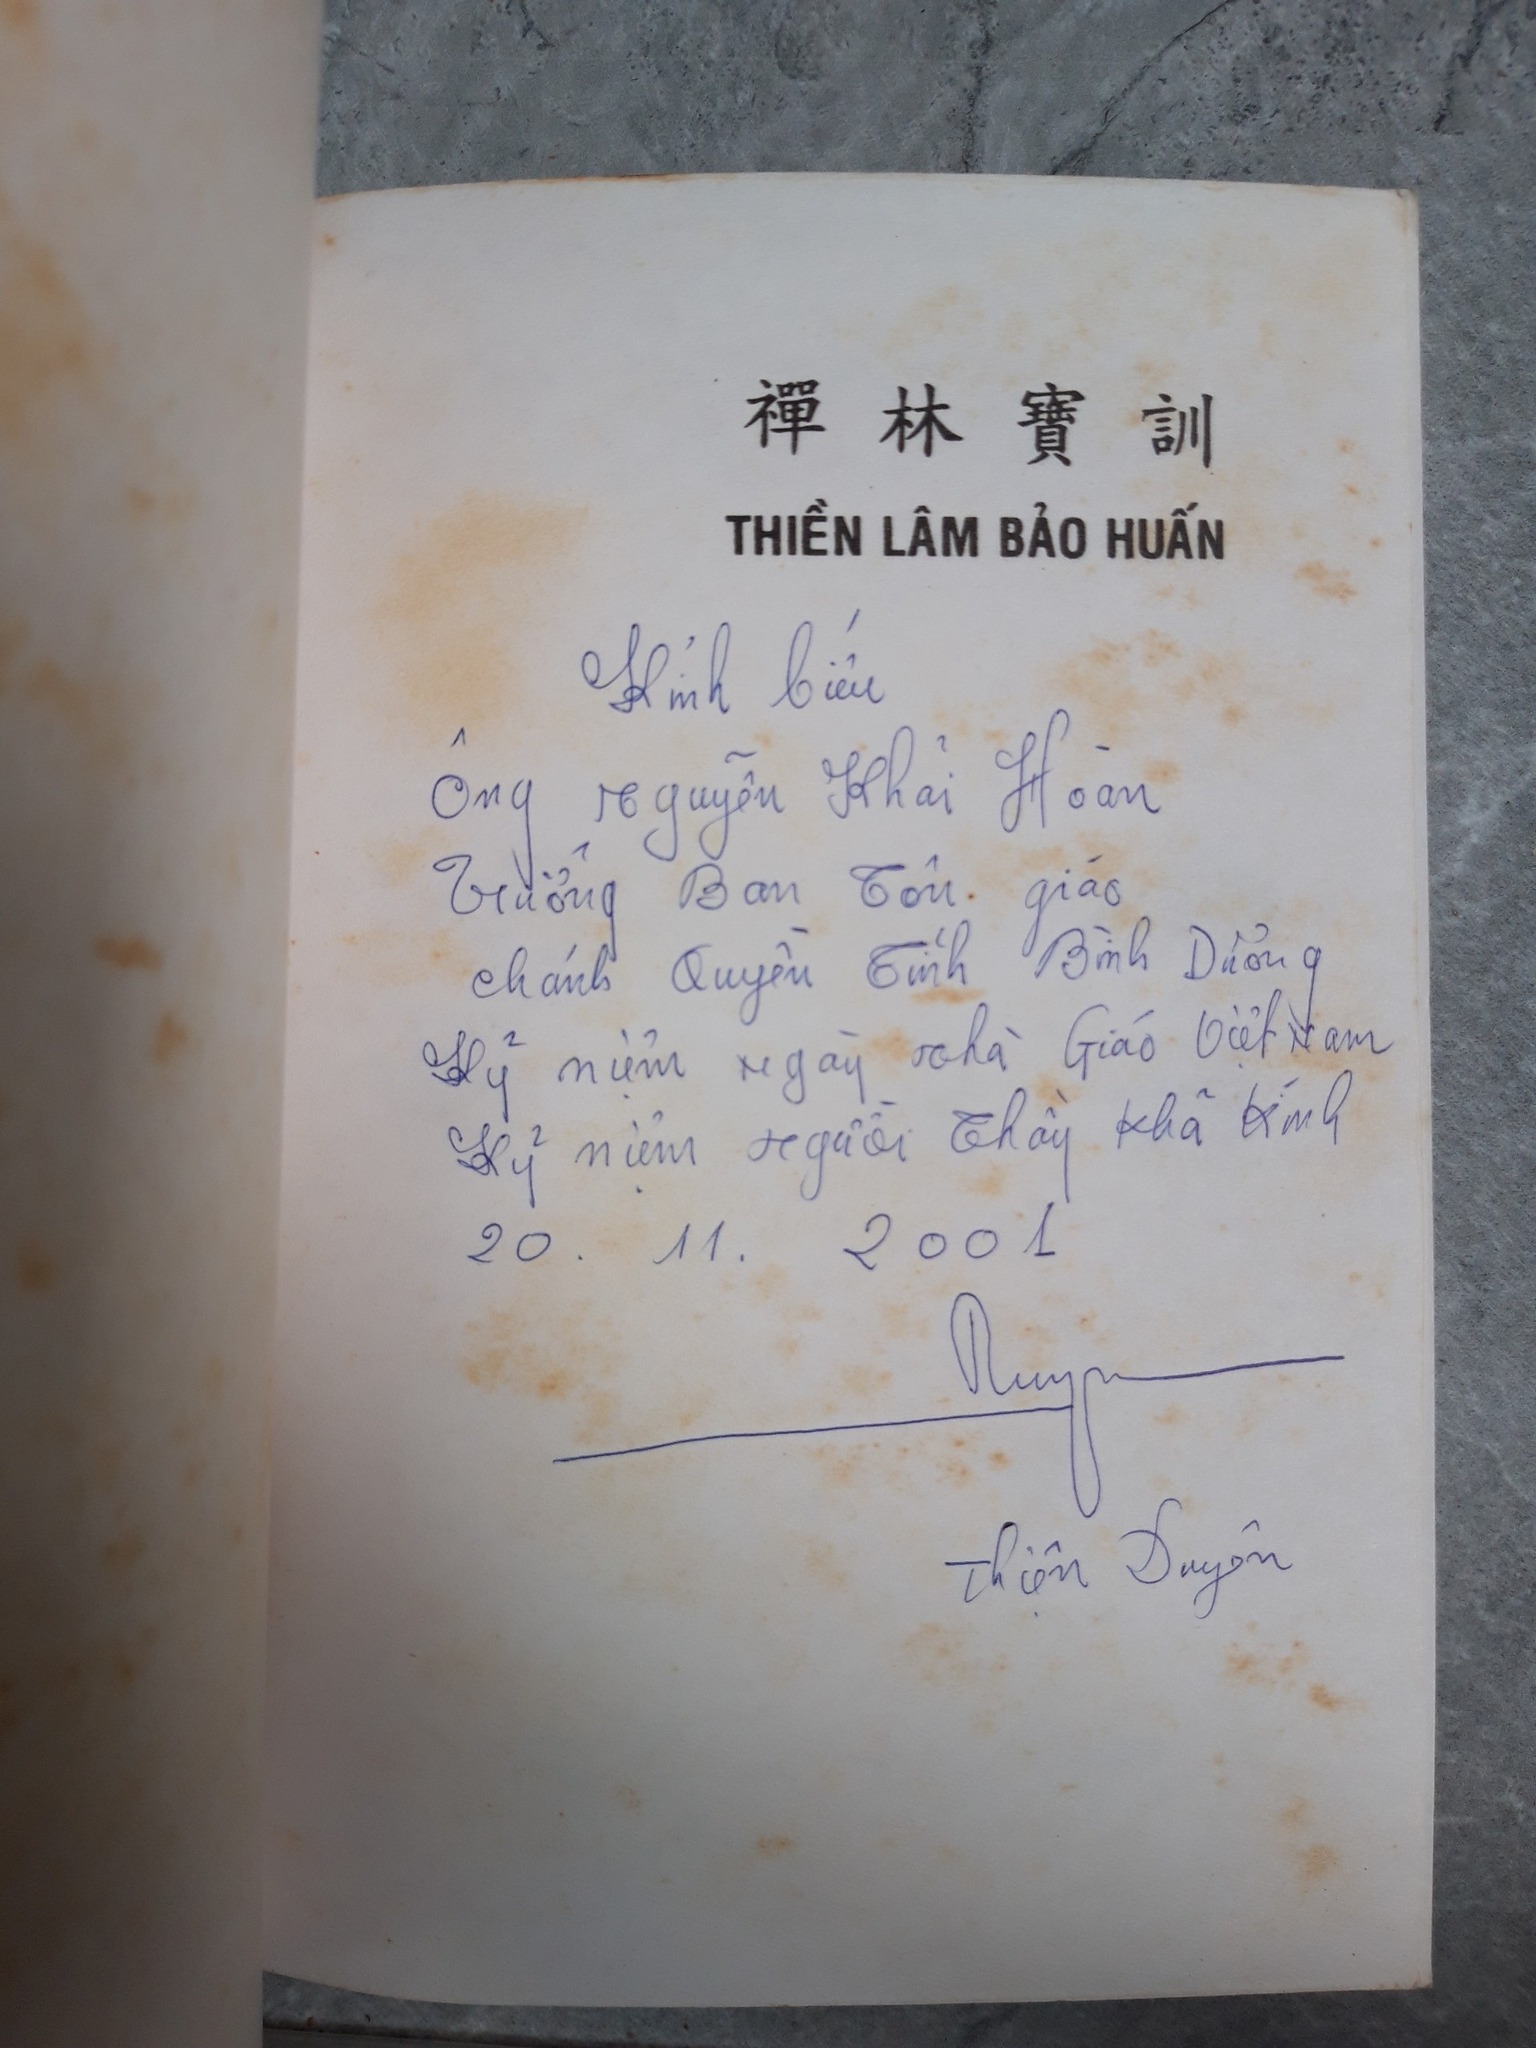 禪林寶訓
THIỀN LÂM BẢO HUẤN
Kính biếu
Ông Nguyễn Khải Hoàn
Trưởng Ban Tôn giáo
chánh Quyền Tỉnh Bình Dương
Kỷ niệm ngày nhà Giáo Việt Nam
Kỷ niệm người Thầy khả kính
20. 11. 2001
Thiện Duyên